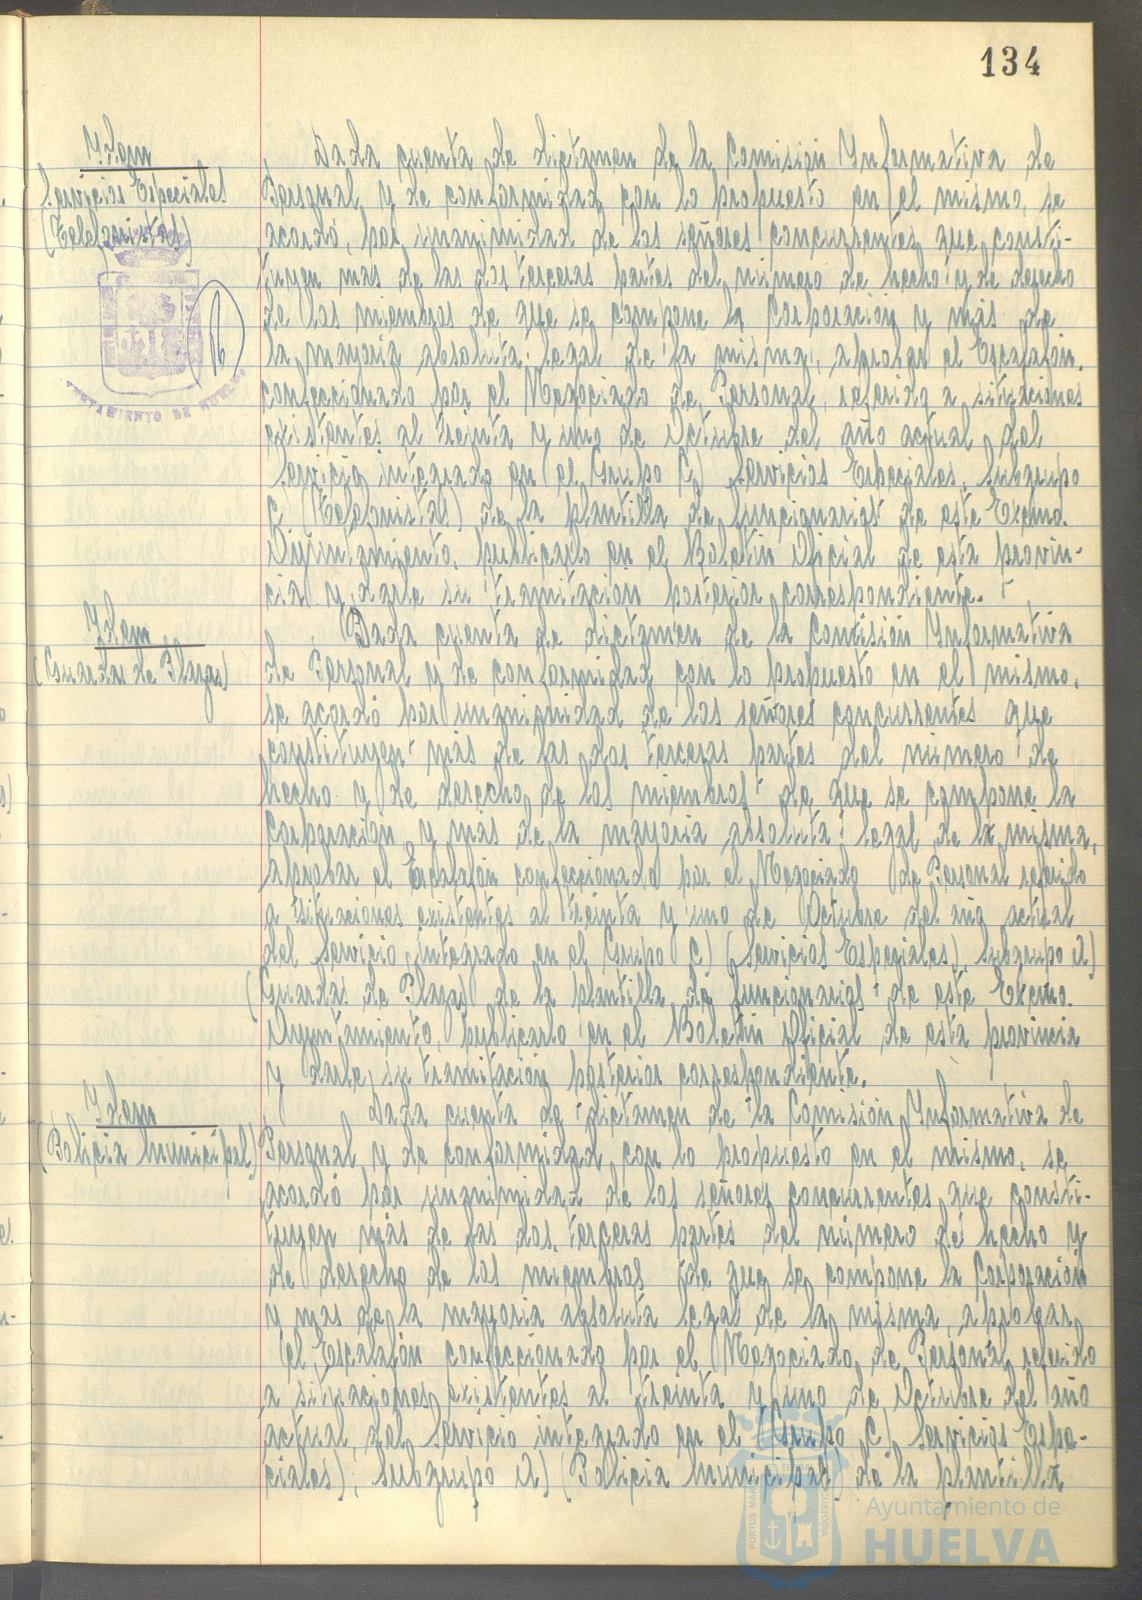 134
Idem
Servicios Especiales
(Telefonistas)
Dada cuenta de dictamen de la Comisión Informativa de
Personal y de conformidad con lo propuesto en el mismo, se
acordó, por unanimidad de los señores concurrentes que consti-
tuyen más de las dos terceras partes del número de hecho y de derecho
de los miembros de que se compone la Corporación y más de
la mayoría absoluta legal de la misma, aprobar el Escalafón
confeccionado por el Negociado de Personal, referido a situaciones
existentes al treinta y uno de Octubre del año actual del
Servicio integrado en el Grupo C) Servicios Especiales, Subgrupo
(Telefonistas) de la plantilla de funcionarios de este Excmo.
Ayuntamiento, publicarlo en el Boletín Oficial de esta provin-
cia y darle su tramitación posterior correspondiente.
Idem
(Guardas de Plazas)
Dada cuenta de dictamen de la Comisión Informativa
de Personal y de conformidad con lo propuesto en el mismo,
se acordó por unanimidad de los señores concurrentes que
constituyen más de las dos terceras partes del número de
hecho y de derecho de los miembros de que se compone la
Corporación y más de la mayoría absoluta legal de la misma,
aprobar el Escalafón confeccionado por el Negociado de Personal referido
a situaciones existentes al treinta y uno de Octubre del año actual
del Servicio integrado en el Grupo C) (Servicios Especiales), subgrupo a)
(Guardas de Plazas) de la plantilla de funcionarios de este Excmo.
Ayuntamiento, publicarlo en el Boletín Oficial de esta provincia
y darle su tramitación posterior correspondiente.
Idem
(Policía Municipal)
Dada cuenta de dictamen de la Comisión Informativa de
Personal y de conformidad con lo propuesto en el mismo, se
acordó por unanimidad de los señores concurrentes que consti-
tuyen más de las dos terceras partes del número de hecho y
de derecho de los miembros de que se compone la Corporación
y más de la mayoría absoluta legal de la misma, aprobar
el Escalafón confeccionado por el Negociado de Personal referido
a situaciones existentes al treinta y uno de Octubre del año
actual, del Servicio integrado en el Grupo C) Servicios Espe-
ciales), subgrupo a) (Policía Municipal) de la plantilla
Ayuntamiento de
HUELVA